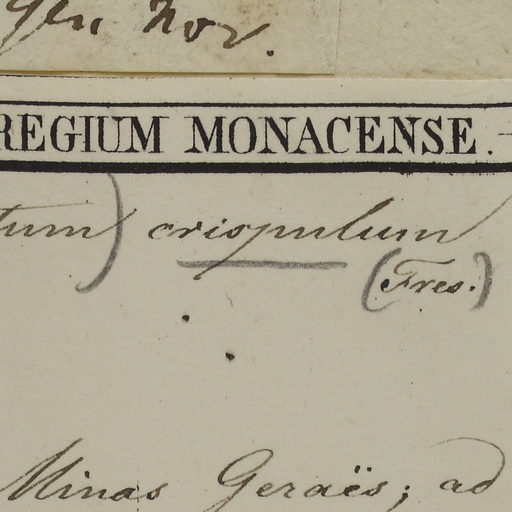 gen nov.
REGIUM MONACENSE.
tum) crispulum
(Fres.)
Minas Geraës; ad